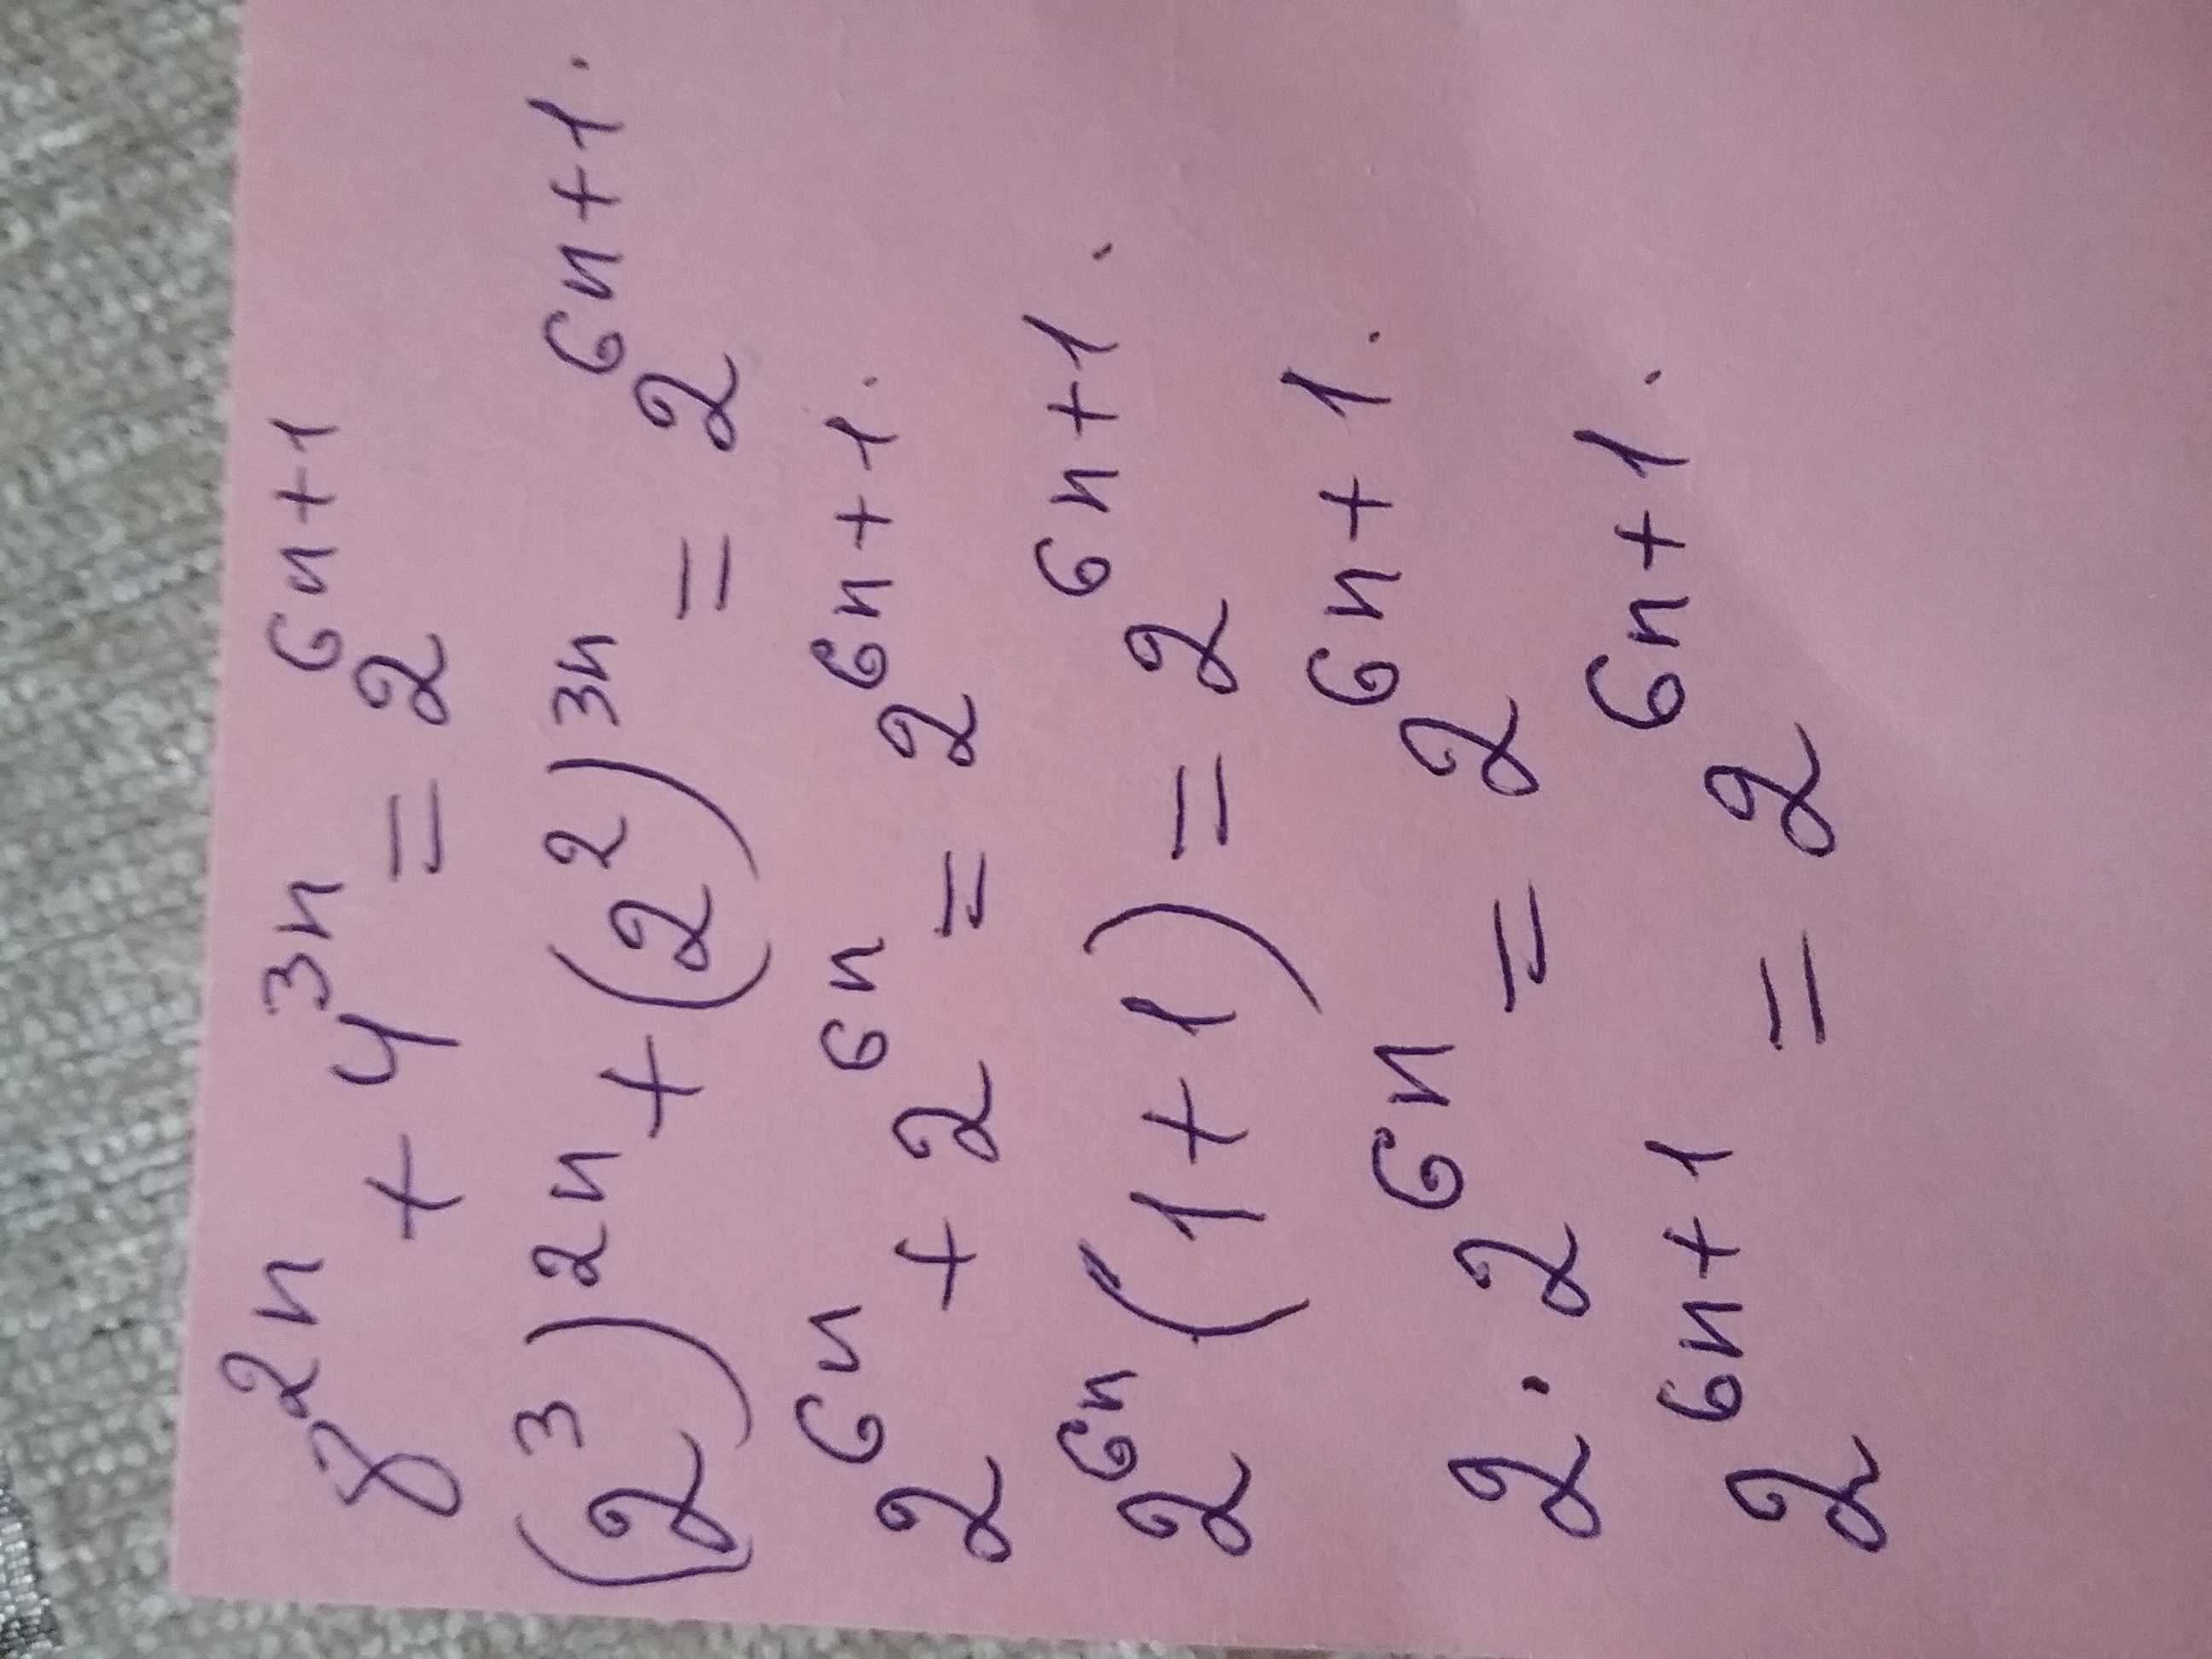 8^{2n} + 4^{3n} = 2^{6n+1}
(2^3)^{2n} + (2^2)^{3n} = 2^{6n+1}.
2^{6n} + 2^{6n} = 2^{6n+1}.
2^{6n}(1+1) = 2^{6n+1}.
2 · 2^{6n} = 2^{6n+1}.
2^{6n+1} = 2^{6n+1}.